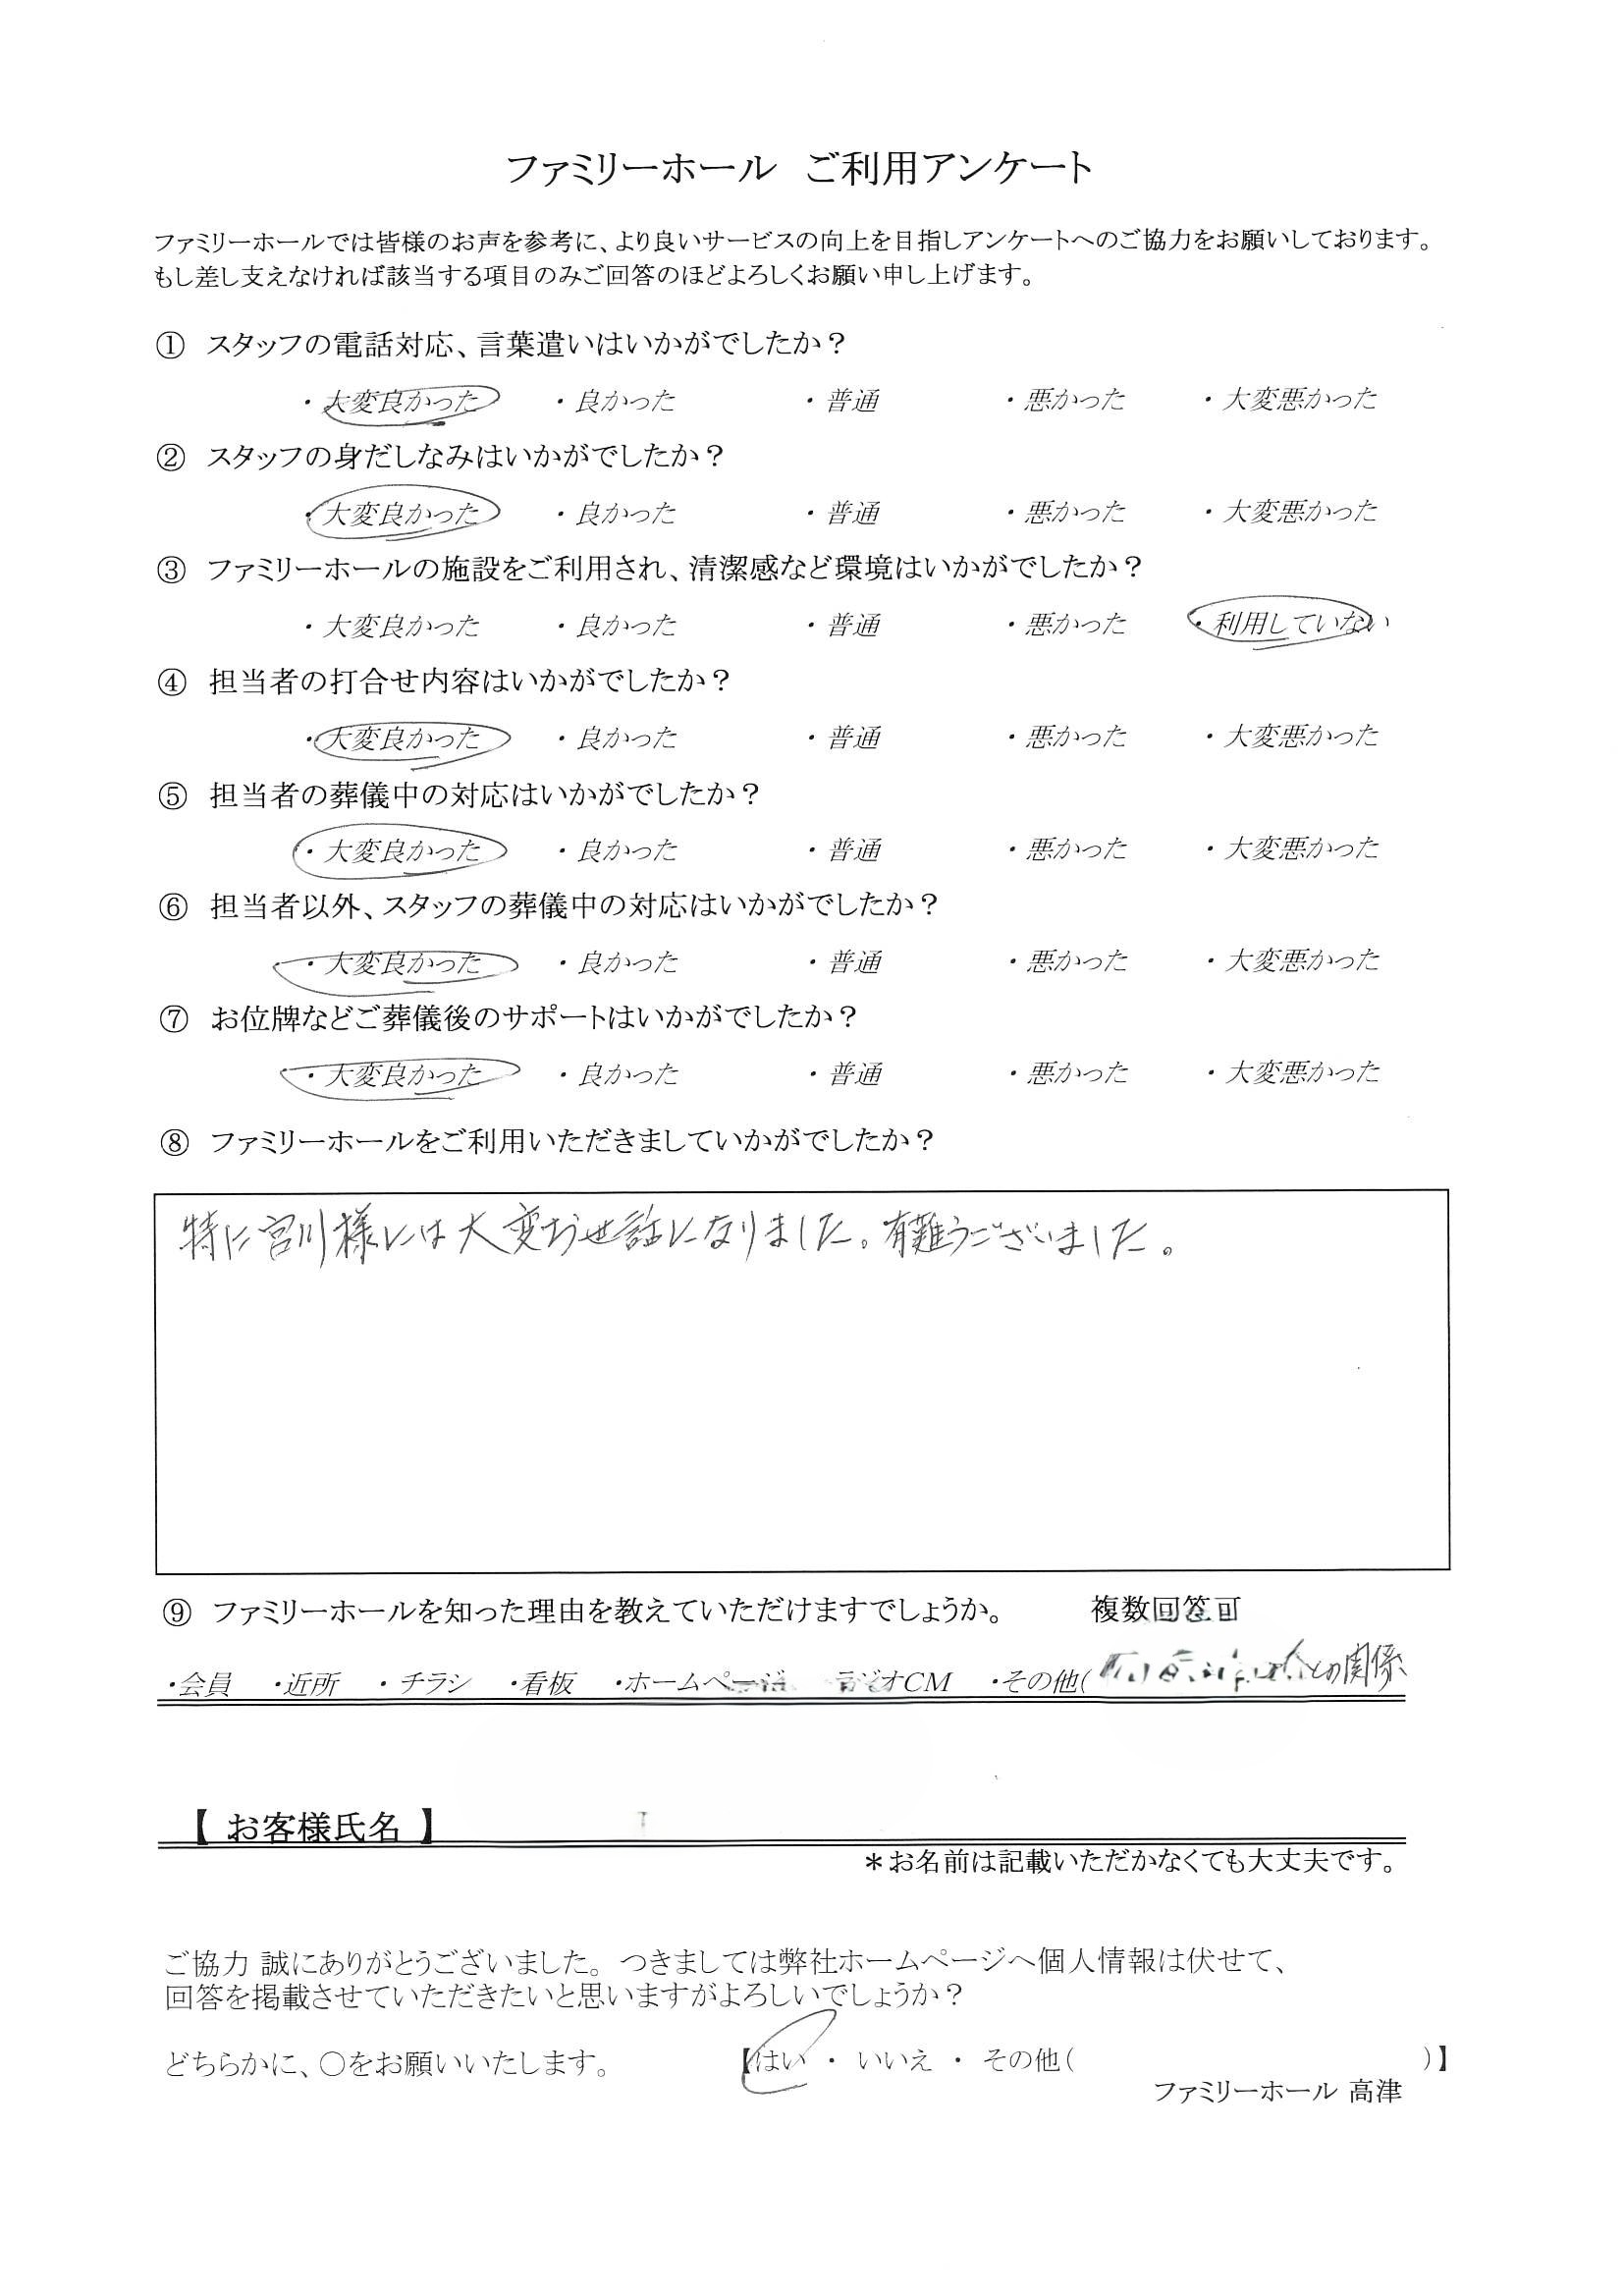 ファミリーホール ご利用アンケート
ファミリーホールでは皆様のお声を参考に、より良いサービスの向上を目指しアンケートへのご協力をお願いしております。
もし差し支えなければ該当する項目のみご回答のほどよろしくお願い申し上げます。
① スタッフの電話対応、言葉遣いはいかがでしたか？
・大変良かった ・良かった ・普通 ・悪かった ・大変悪かった
② スタッフの身だしなみはいかがでしたか？
・大変良かった ・良かった ・普通 ・悪かった ・大変悪かった
③ ファミリーホールの施設をご利用され、清潔感など環境はいかがでしたか？
・大変良かった ・良かった ・普通 ・悪かった ・利用していない
④ 担当者の打合せ内容はいかがでしたか？
・大変良かった ・良かった ・普通 ・悪かった ・大変悪かった
⑤ 担当者の葬儀中の対応はいかがでしたか？
・大変良かった ・良かった ・普通 ・悪かった ・大変悪かった
⑥ 担当者以外、スタッフの葬儀中の対応はいかがでしたか？
・大変良かった ・良かった ・普通 ・悪かった ・大変悪かった
⑦ お位牌などご葬儀後のサポートはいかがでしたか？
・大変良かった ・良かった ・普通 ・悪かった ・大変悪かった
⑧ ファミリーホールをご利用いただきましていかがでしたか？
特に宮川様には大変お世話になりました。有難うございました。
⑨ ファミリーホールを知った理由を教えていただけますでしょうか。 複数回答可
・会員 ・近所 ・チラシ ・看板 ・ホームページ ラジオCM ・その他( との関係
【 お客様氏名 】
＊お名前は記載いただかなくても大丈夫です。
ご協力 誠にありがとうございました。つきましては弊社ホームページへ個人情報は伏せて、
回答を掲載させていただきたいと思いますがよろしいでしょうか？
どちらかに、〇をお願いいたします。 【はい ・ いいえ ・ その他( )】
ファミリーホール 高津